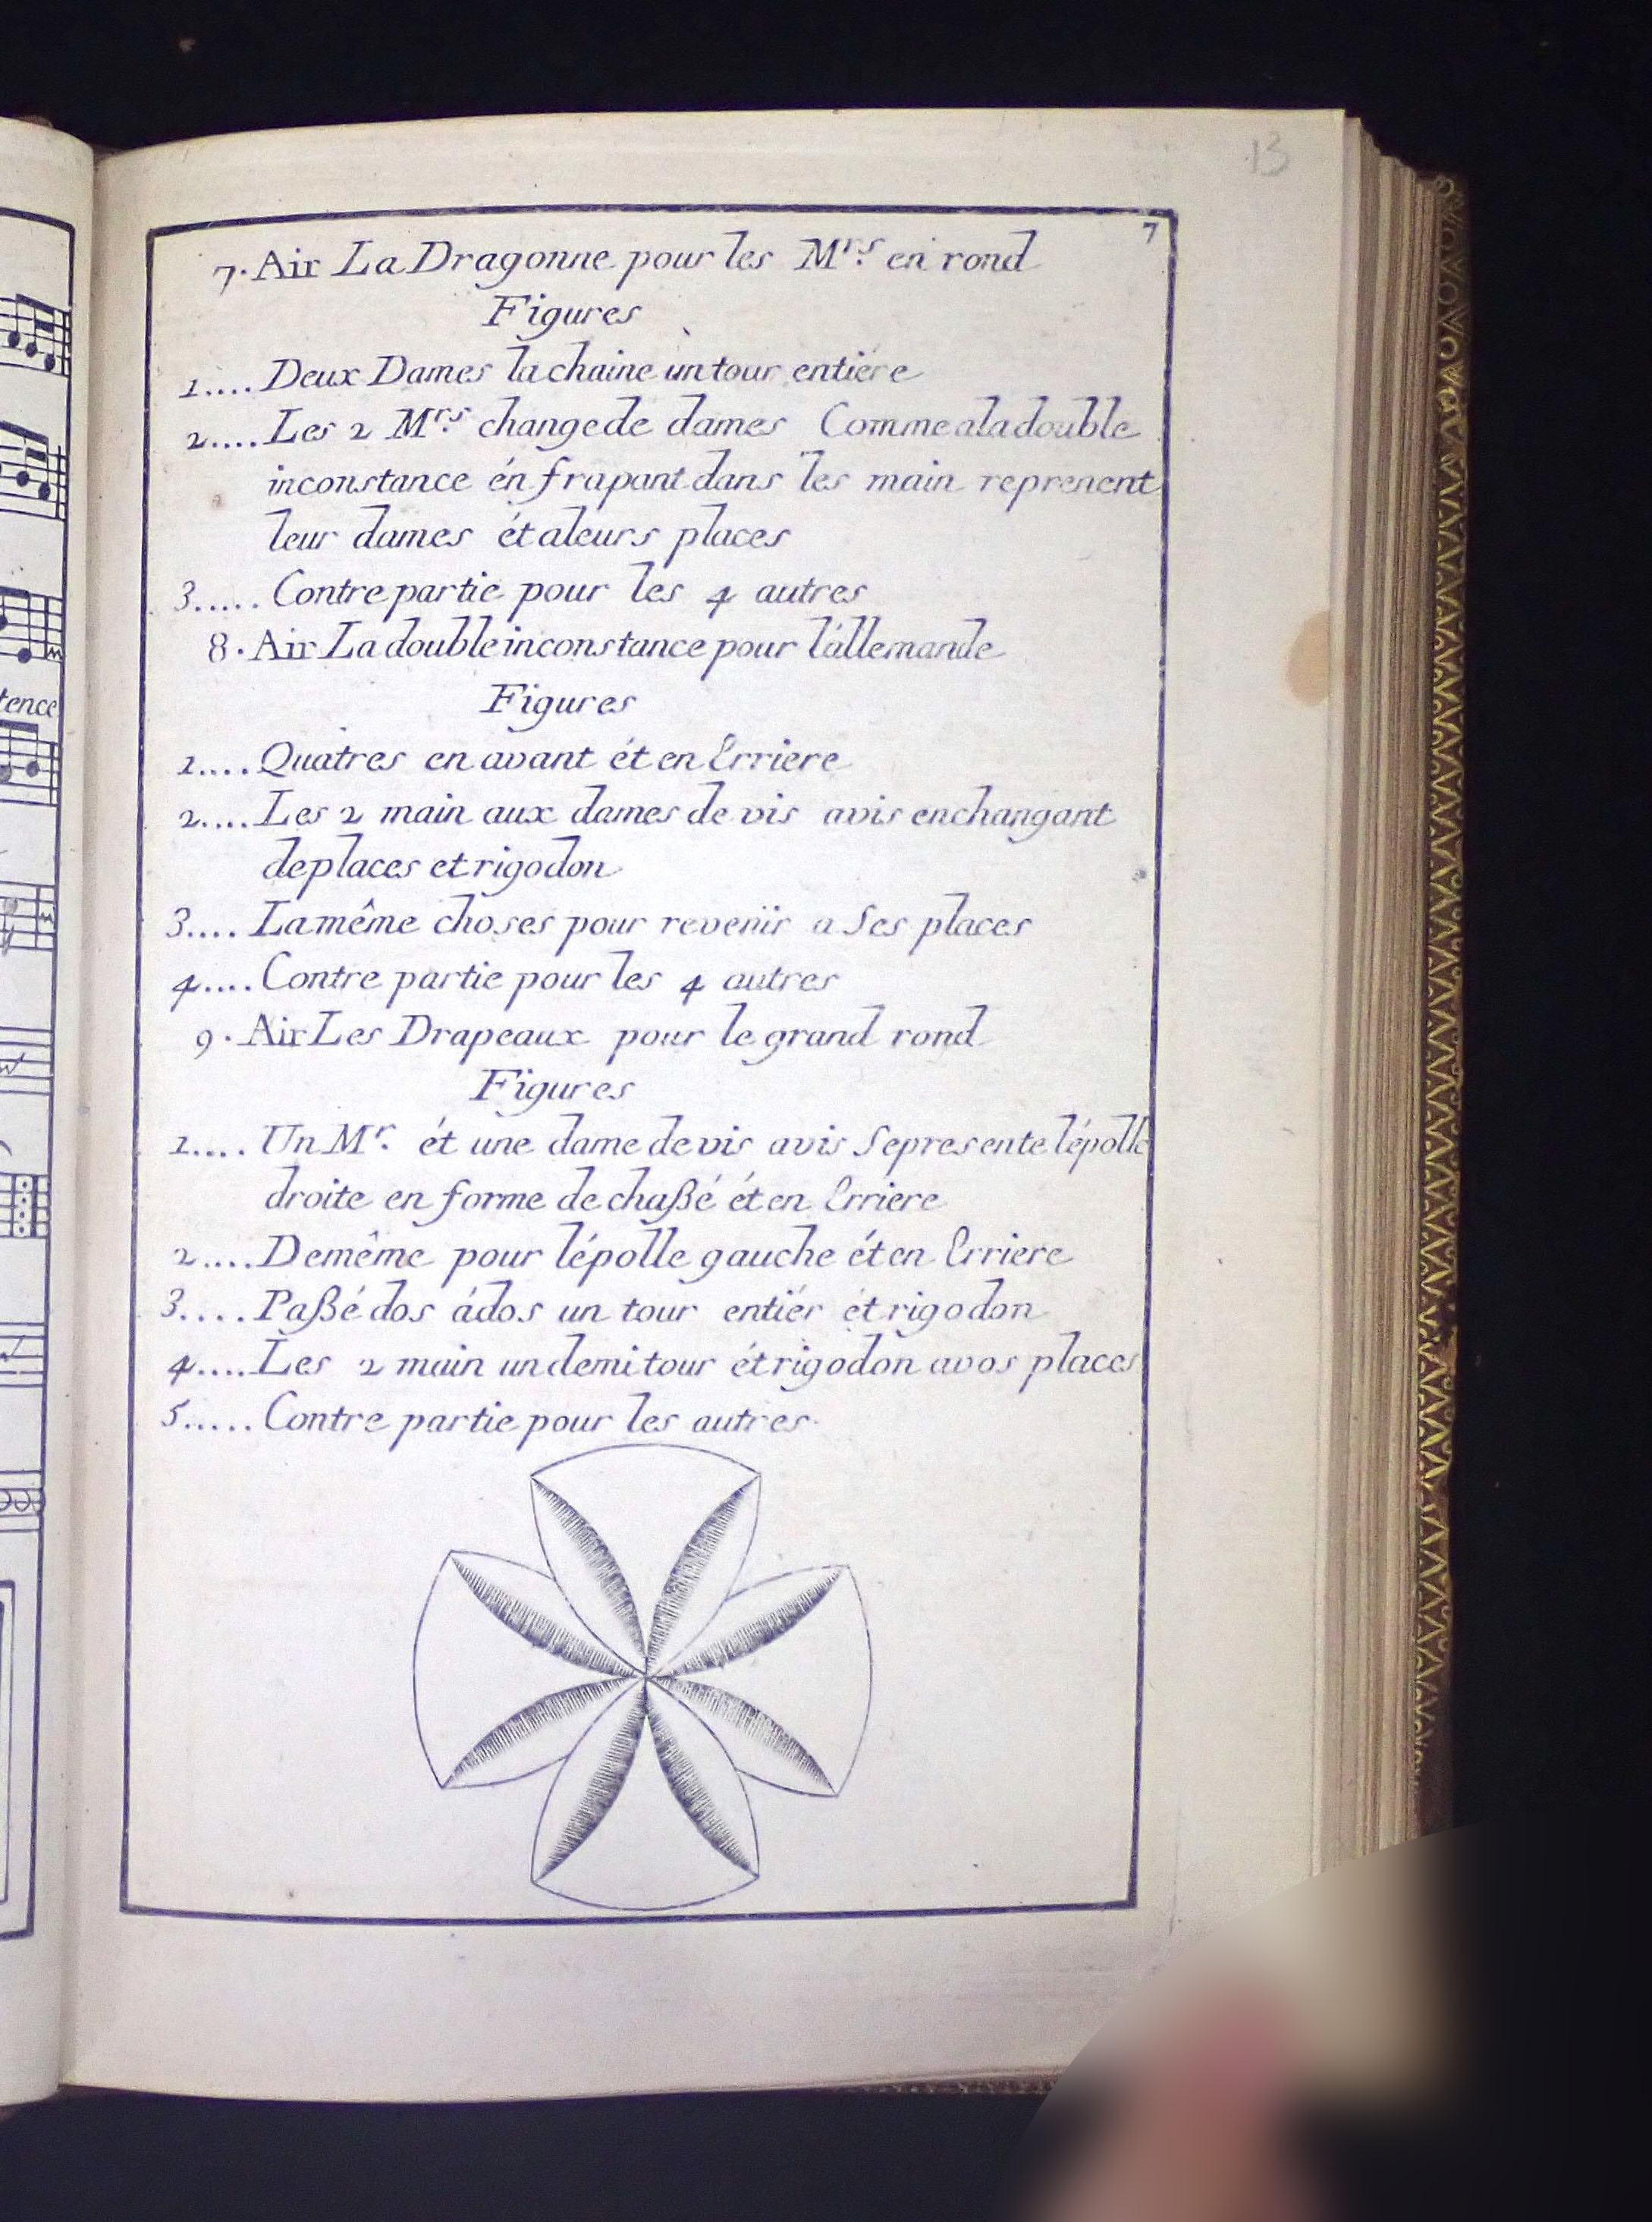 13
7
7. Air La Dragonne pour les Mrs. en rond
Figures
1.... Deux Dames la chaine un tour entiére
2.... Les 2 Mrs. change de dames Comme ala double
inconstance én frapant dans les main reprenent
leur dames ét aleurs places
3..... Contre partie pour les 4 autres
8. Air La double inconstance pour l'allemande
Figures
1.... Quatres en avant ét en Erriere
2.... Les 2 main aux dames de vis avis enchangant
de places et rigodon
3.... La même choses pour revenir a Ses places
4.... Contre partie pour les 4 autres
9. Air Les Drapeaux pour le grand rond
Figures
1.... Un Mr. ét une dame de vis avis Se presente lépolle
droite en forme de chaßé ét en Erriere
2.... De même pour lépolle gauche ét en Erriere
3.... Paßé dos ádos un tour entiér ét rigodon
4.... Les 2 main un demi tour ét rigodon avos places
5..... Contre partie pour les autres.
tence